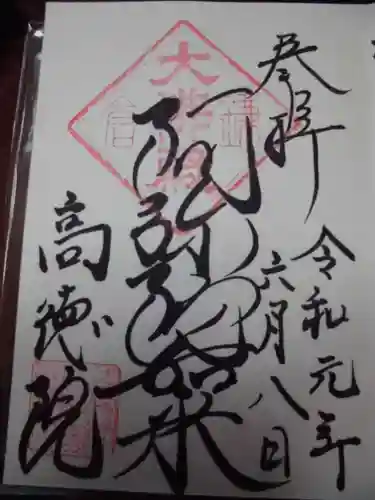 奉拝
令和元年
六月八日
阿弥陀如来
高徳院
鎌倉
大佛殿